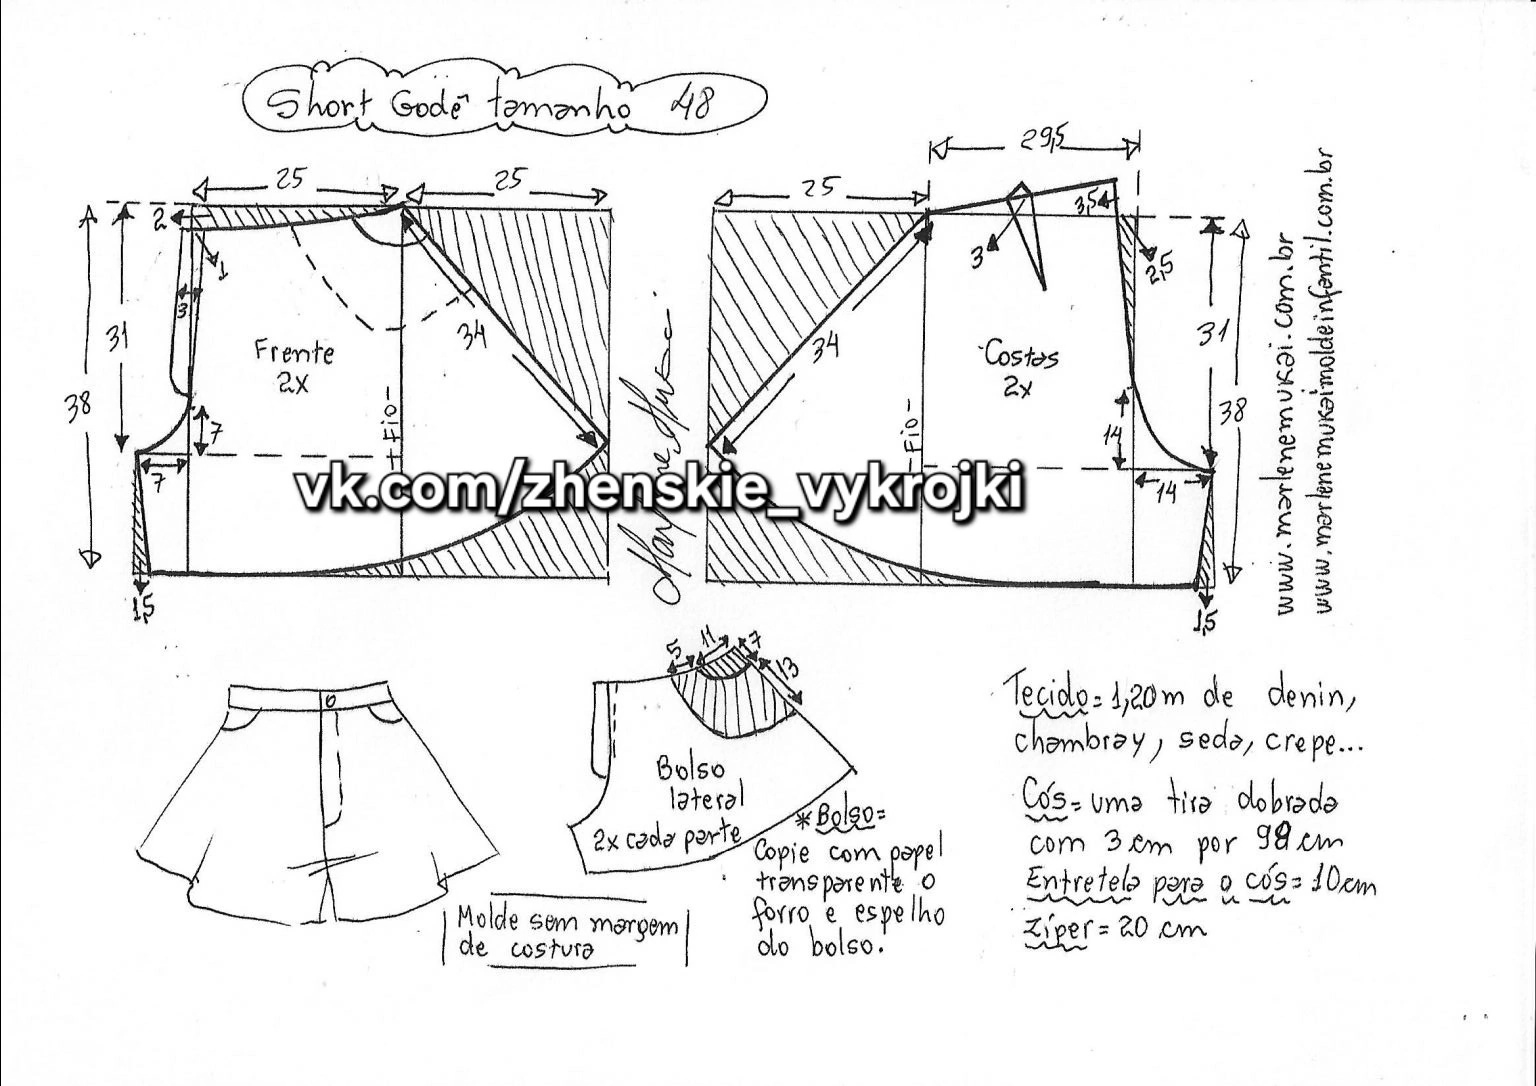 Short Godê tamanho 48
25
25
2
1
3
31
38
34
Frente
2x
-Fio-
7
7
1,5
25
29,5
3,5
3
2,5
34
Costas
2x
-Fio-
31
38
14
14
1,5
www.marlenemukai.com.br
www.marlenemukaimoldeinfantil.com.br
vk.com/zhenskie_vykrojki
5
11
7
13
Bolso
lateral
2x cada parte
*Bolso=
Copie com papel
transparente o
forro e espelho
do bolso.
Molde sem margem
de costura
Tecido= 1,20m de denin,
chambray, seda, crepe...
Cós= uma tira dobrada
com 3 cm por 98 cm
Entretela para o cós= 10cm
zíper= 20 cm